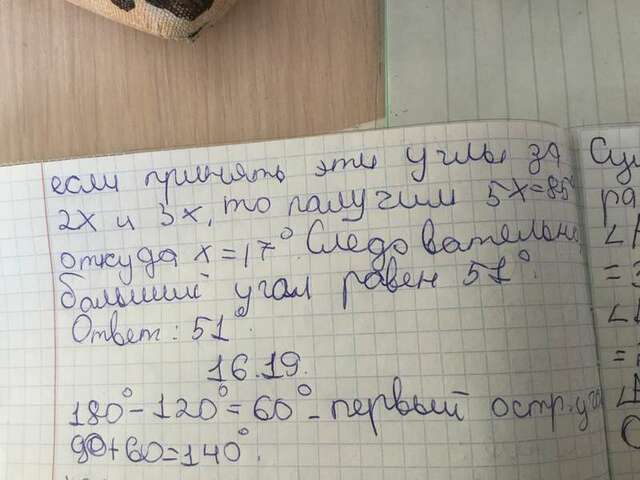 если принять эти углы за
2x и 3x, то получим 5x=85°
откуда x=17°. Следовательно,
больший угол равен 51°.
Ответ: 51°.
16.19.
180°-120°=60°-первый остр. уг
90+60=140°.
Су
ра
∠
=
∠
=
∠